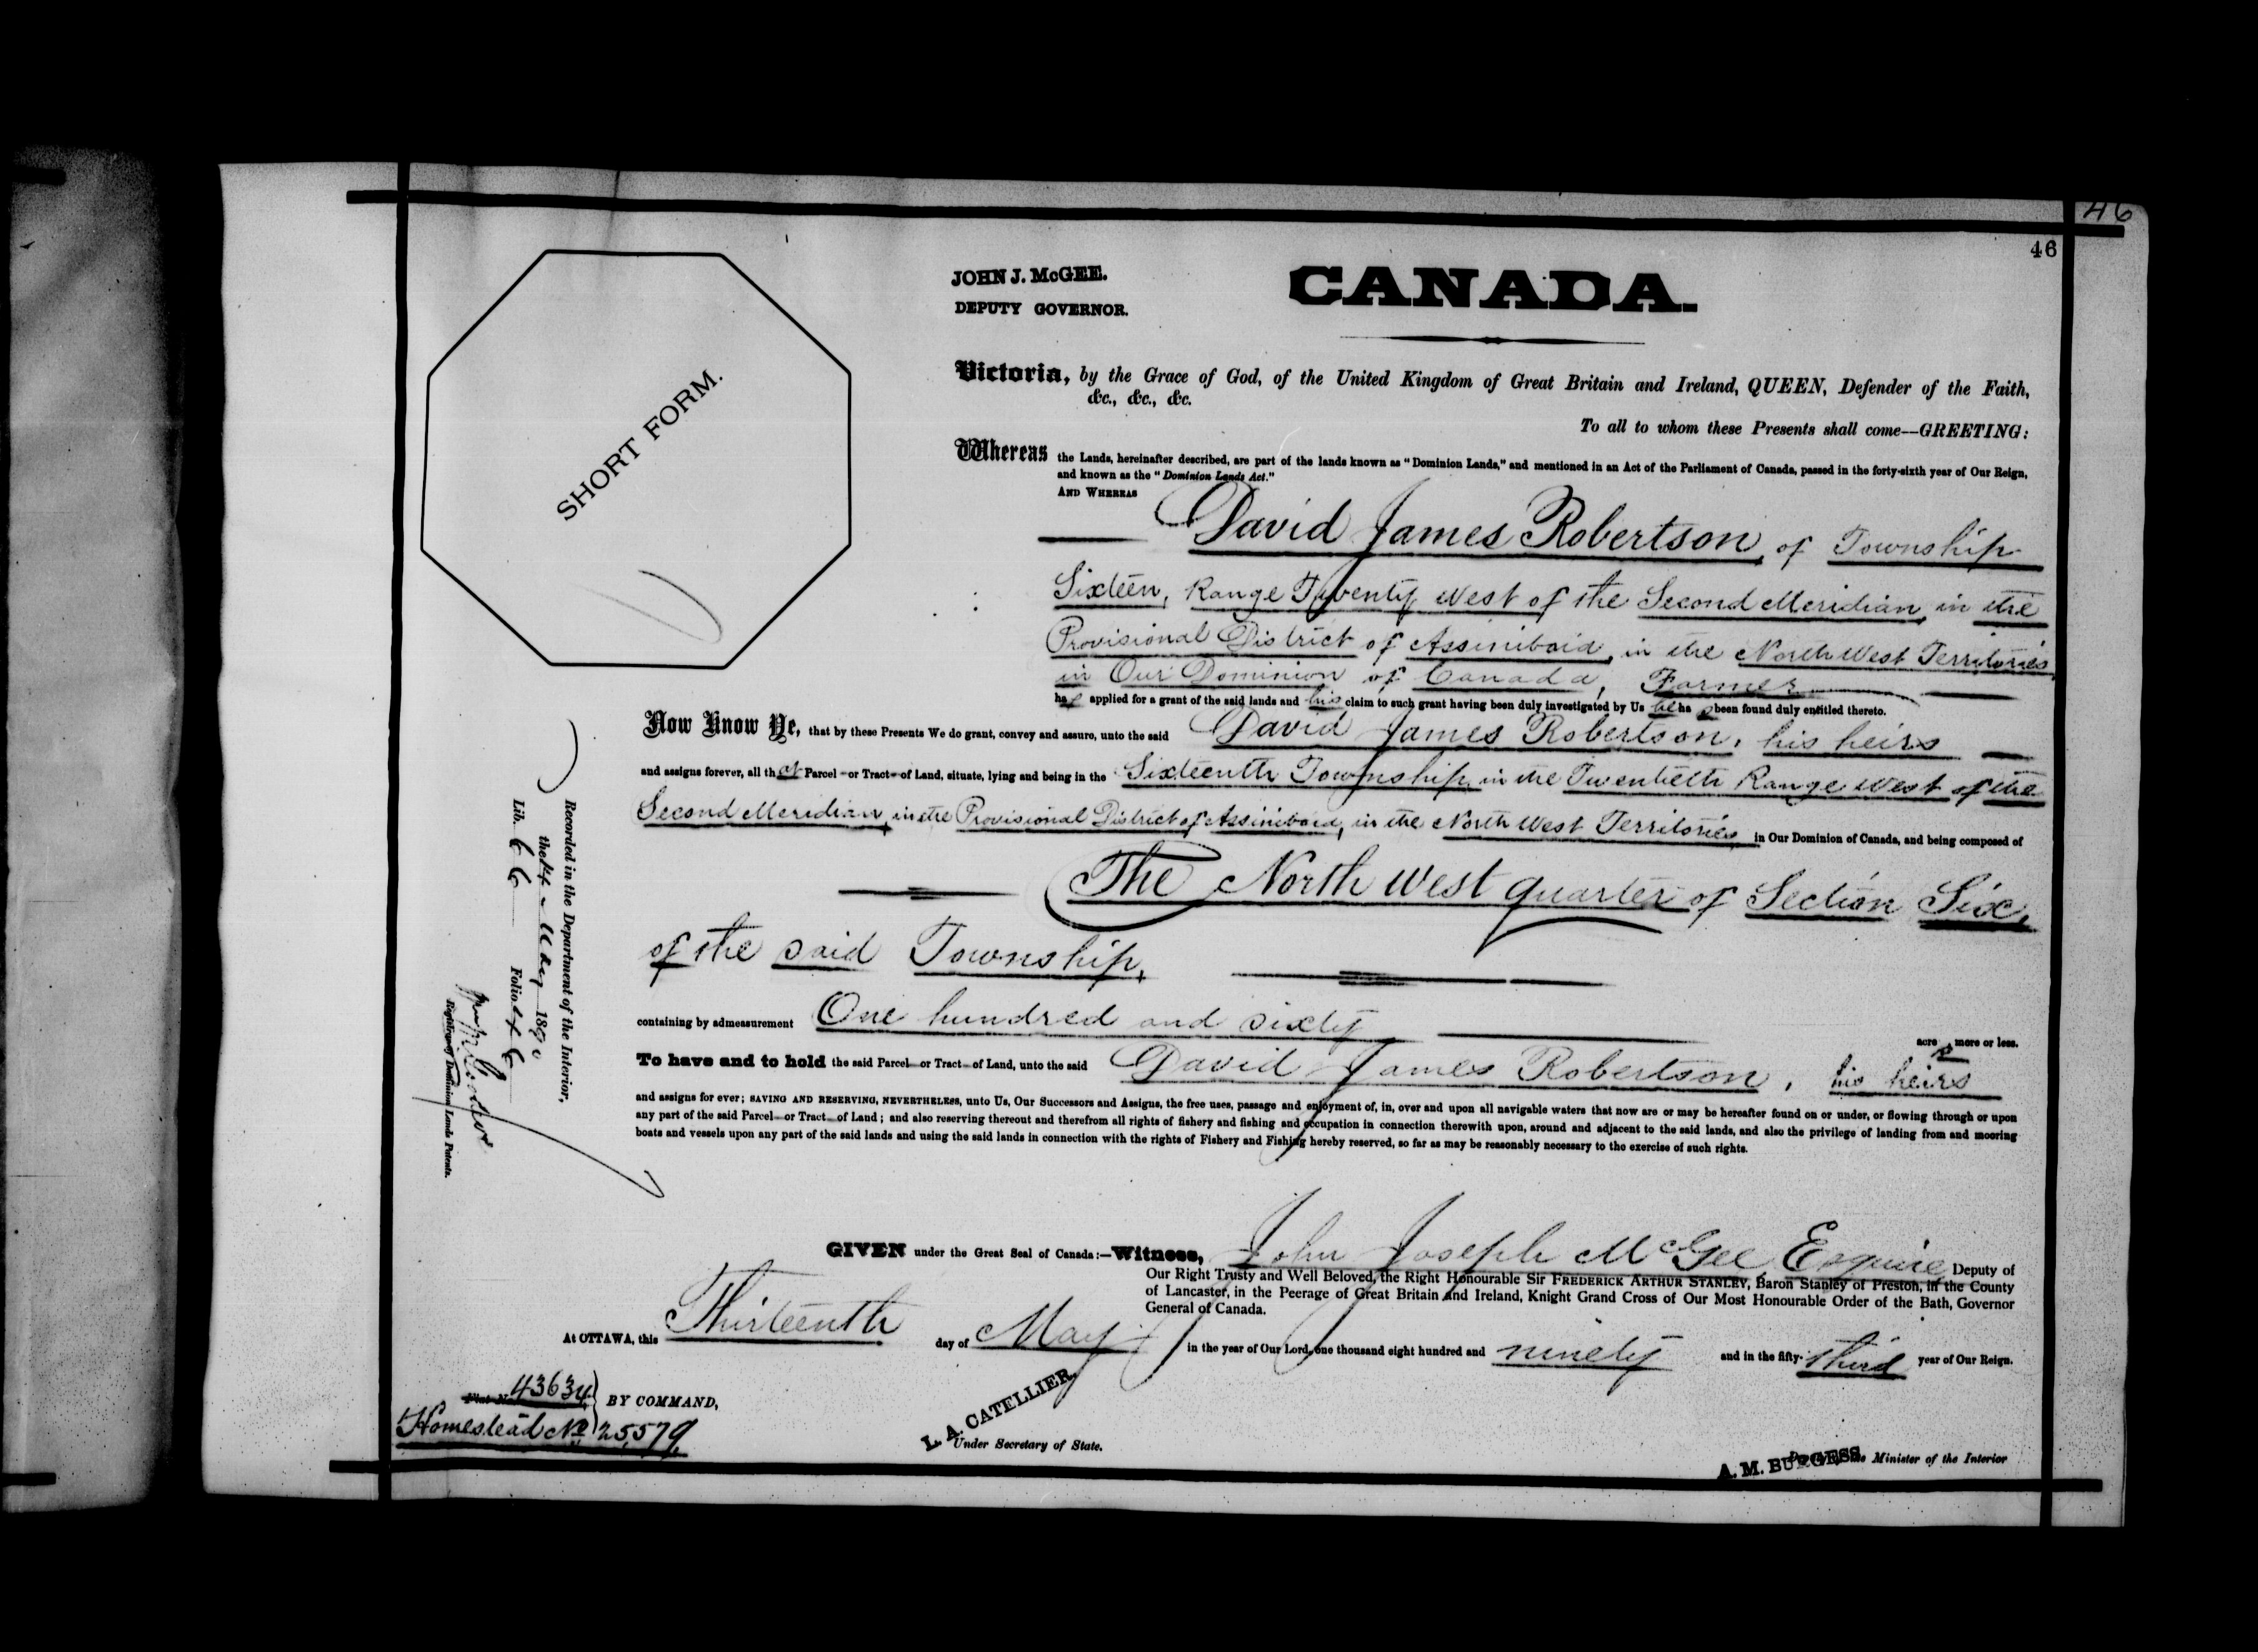 46
46
JOHN J. McGEE.
DEPUTY GOVERNOR.
CANADA.
SHORT FORM.
Victoria, by the Grace of God, of the United Kingdom of Great Britain and Ireland, QUEEN, Defender of the Faith,
&c., &c., &c.
To all to whom these Presents shall come—GREETING:
Whereas the Lands, hereinafter described, are part of the lands known as "Dominion Lands," and mentioned in an Act of the Parliament of Canada, passed in the forty-sixth year of Our Reign,
and known as the "Dominion Lands Act."
AND WHEREAS
David James Robertson, of Township
Sixteen, Range Twenty West of the Second Meridian, in the
Provisional District of Assiniboia, in the North West Territories
in Our Dominion of Canada, Farmer
has applied for a grant of the said lands and his claim to such grant having been duly investigated by Us he has been found duly entitled thereto.
Now Know Ye, that by these Presents We do grant, convey and assure, unto the said David James Robertson, his heirs
and assigns forever, all that Parcel or Tract of Land, situate, lying and being in the Sixteenth Township, in the Twentieth Range West of the
Second Meridian, in the Provisional District of Assiniboia, in the North West Territories in Our Dominion of Canada, and being composed of
The North West quarter of Section Six,
of the said Township,
containing by admeasurement One hundred and sixty acres more or less.
To have and to hold the said Parcel or Tract of Land, unto the said David James Robertson, his heirs
and assigns for ever; SAVING AND RESERVING, NEVERTHELESS, unto Us, Our Successors and Assigns, the free uses, passage and enjoyment of, in, over and upon all navigable waters that now are or may be hereafter found on or under, or flowing through or upon
any part of the said Parcel or Tract of Land; and also reserving thereout and therefrom all rights of fishery and fishing and occupation in connection therewith upon, around and adjacent to the said lands, and also the privilege of landing from and mooring
boats and vessels upon any part of the said lands and using the said lands in connection with the rights of Fishery and Fishing hereby reserved, so far as may be reasonably necessary to the exercise of such rights.
Recorded in the Department of the Interior,
the 14 May 1890
Lib. 66 Folio 46
Registrar of Dominion Lands Patents.
GIVEN under the Great Seal of Canada:—Witness, John Joseph McGee, Esquire, Deputy of
Our Right Trusty and Well Beloved, the Right Honourable Sir FREDERICK ARTHUR STANLEY, Baron Stanley of Preston, in the County
of Lancaster, in the Peerage of Great Britain and Ireland, Knight Grand Cross of Our Most Honourable Order of the Bath, Governor
General of Canada.
At OTTAWA, this Thirteenth day of May in the year of Our Lord, one thousand eight hundred and ninety and in the fifty-third year of Our Reign.
43634 BY COMMAND,
Homestead No 25579.
L. A. CATELLIER.
Under Secretary of State.
A. M. BURGESS
Minister of the Interior